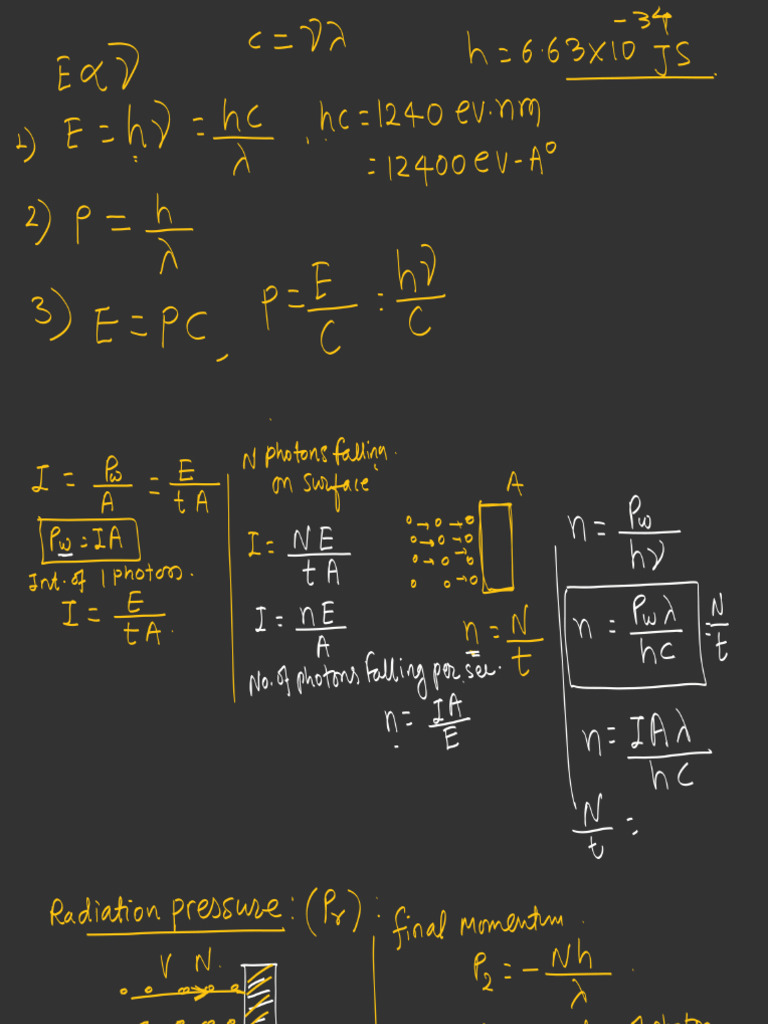 c = νλ
h = 6.63×10^-34 JS
E ∝ ν
1) E = hν = hc/λ , hc = 1240 ev.nm
= 12400 ev-A°
2) P = h/λ
3) E = PC , P = E/C = hν/C
I = Pw/A = E/tA
Pw = IA
Int. of 1 photon.
I = E/tA.
N photons falling.
on surface
I = NE/tA
I = nE/A
A
n = N/t
No. of photons falling per sec.
n = IA/E
n = Pw/hν
n = Pwλ/hc = N/t
n = IAλ/hc
N/t =
Radiation pressure: (Pr) :
V N.
final momentum.
P2 = -Nh/λ.